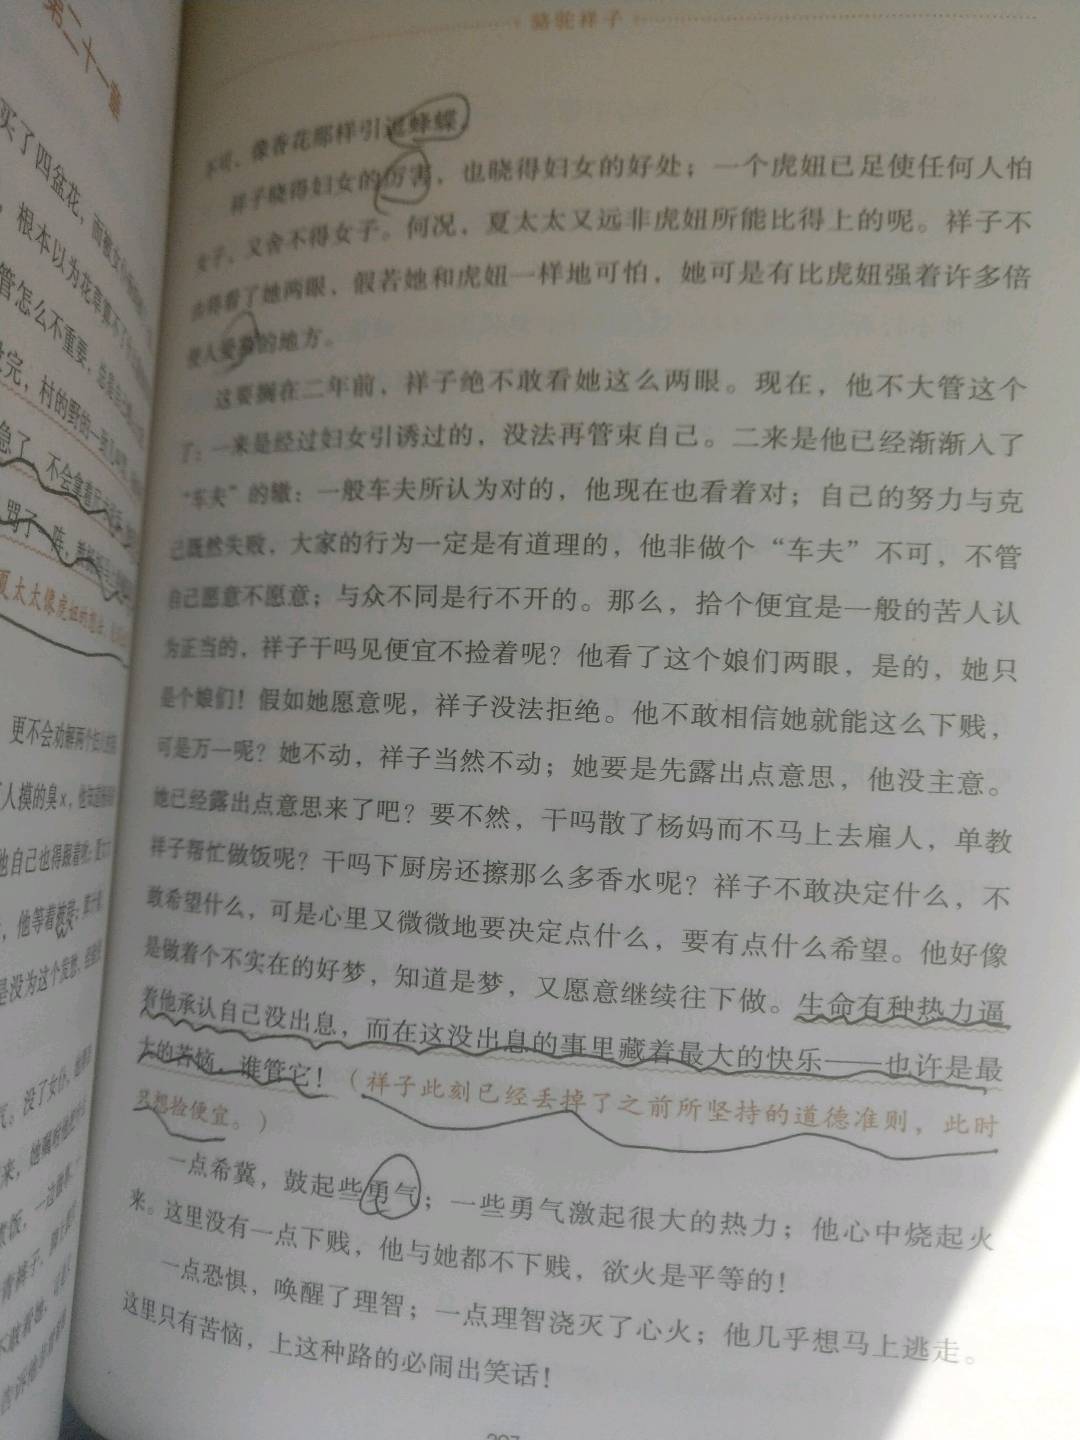 第二十一章
买了四盆花，而被女
，根本以为花草算不了什么
管怎么不重要，总是自己
完，村的野的一齐
急了，不会拿着
骂了一阵，
夏太太像虎妞的
更不会劝解
人摸的臭x，他知道
他自己也得跟着
，他等着被
是没为这个发愁，
气。没了女仆，
来，她嘱咐他
煮饭，一边
青裤子，脚下
不敢看她，可是
骆驼祥子
不可，像香花那样引逗蜂蝶。
祥子晓得妇女的厉害，也晓得妇女的好处；一个虎妞已足使任何人怕
女子，又舍不得女子。何况，夏太太又远非虎妞所能比得上的呢。祥子不
由得看了她两眼，假若她和虎妞一样地可怕，她可是有比虎妞强着许多倍
使人爱慕的地方。
这要搁在二年前，祥子绝不敢看她这么两眼。现在，他不大管这个
了：一来是经过妇女引诱过的，没法再管束自己。二来是他已经渐渐入了
“车夫”的辙：一般车夫所认为对的，他现在也看着对；自己的努力与克
己既然失败，大家的行为一定是有道理的，他非做个“车夫”不可，不管
自己愿意不愿意；与众不同是行不开的。那么，拾个便宜是一般的苦人认
为正当的，祥子干吗见便宜不捡着呢？他看了这个娘们两眼，是的，她只
是个娘们！假如她愿意呢，祥子没法拒绝。他不敢相信她就能这么下贱，
可是万一呢？她不动，祥子当然不动；她要是先露出点意思，他没主意。
她已经露出点意思来了吧？要不然，干吗散了杨妈而不马上去雇人，单教
祥子帮忙做饭呢？干吗下厨房还擦那么多香水呢？祥子不敢决定什么，不
敢希望什么，可是心里又微微地要决定点什么，要有点什么希望。他好像
是做着个不实在的好梦，知道是梦，又愿意继续往下做。生命有种热力逼
着他承认自己没出息，而在这没出息的事里藏着最大的快乐——也许是最
大的苦恼，谁管它！（祥子此刻已经丢掉了之前所坚持的道德准则，此时
只想捡便宜。）
一点希冀，鼓起些勇气；一些勇气激起很大的热力；他心中烧起火
来。这里没有一点下贱，他与她都不下贱，欲火是平等的！
一点恐惧，唤醒了理智；一点理智浇灭了心火；他几乎想马上逃走。
这里只有苦恼，上这种路的必闹出笑话！